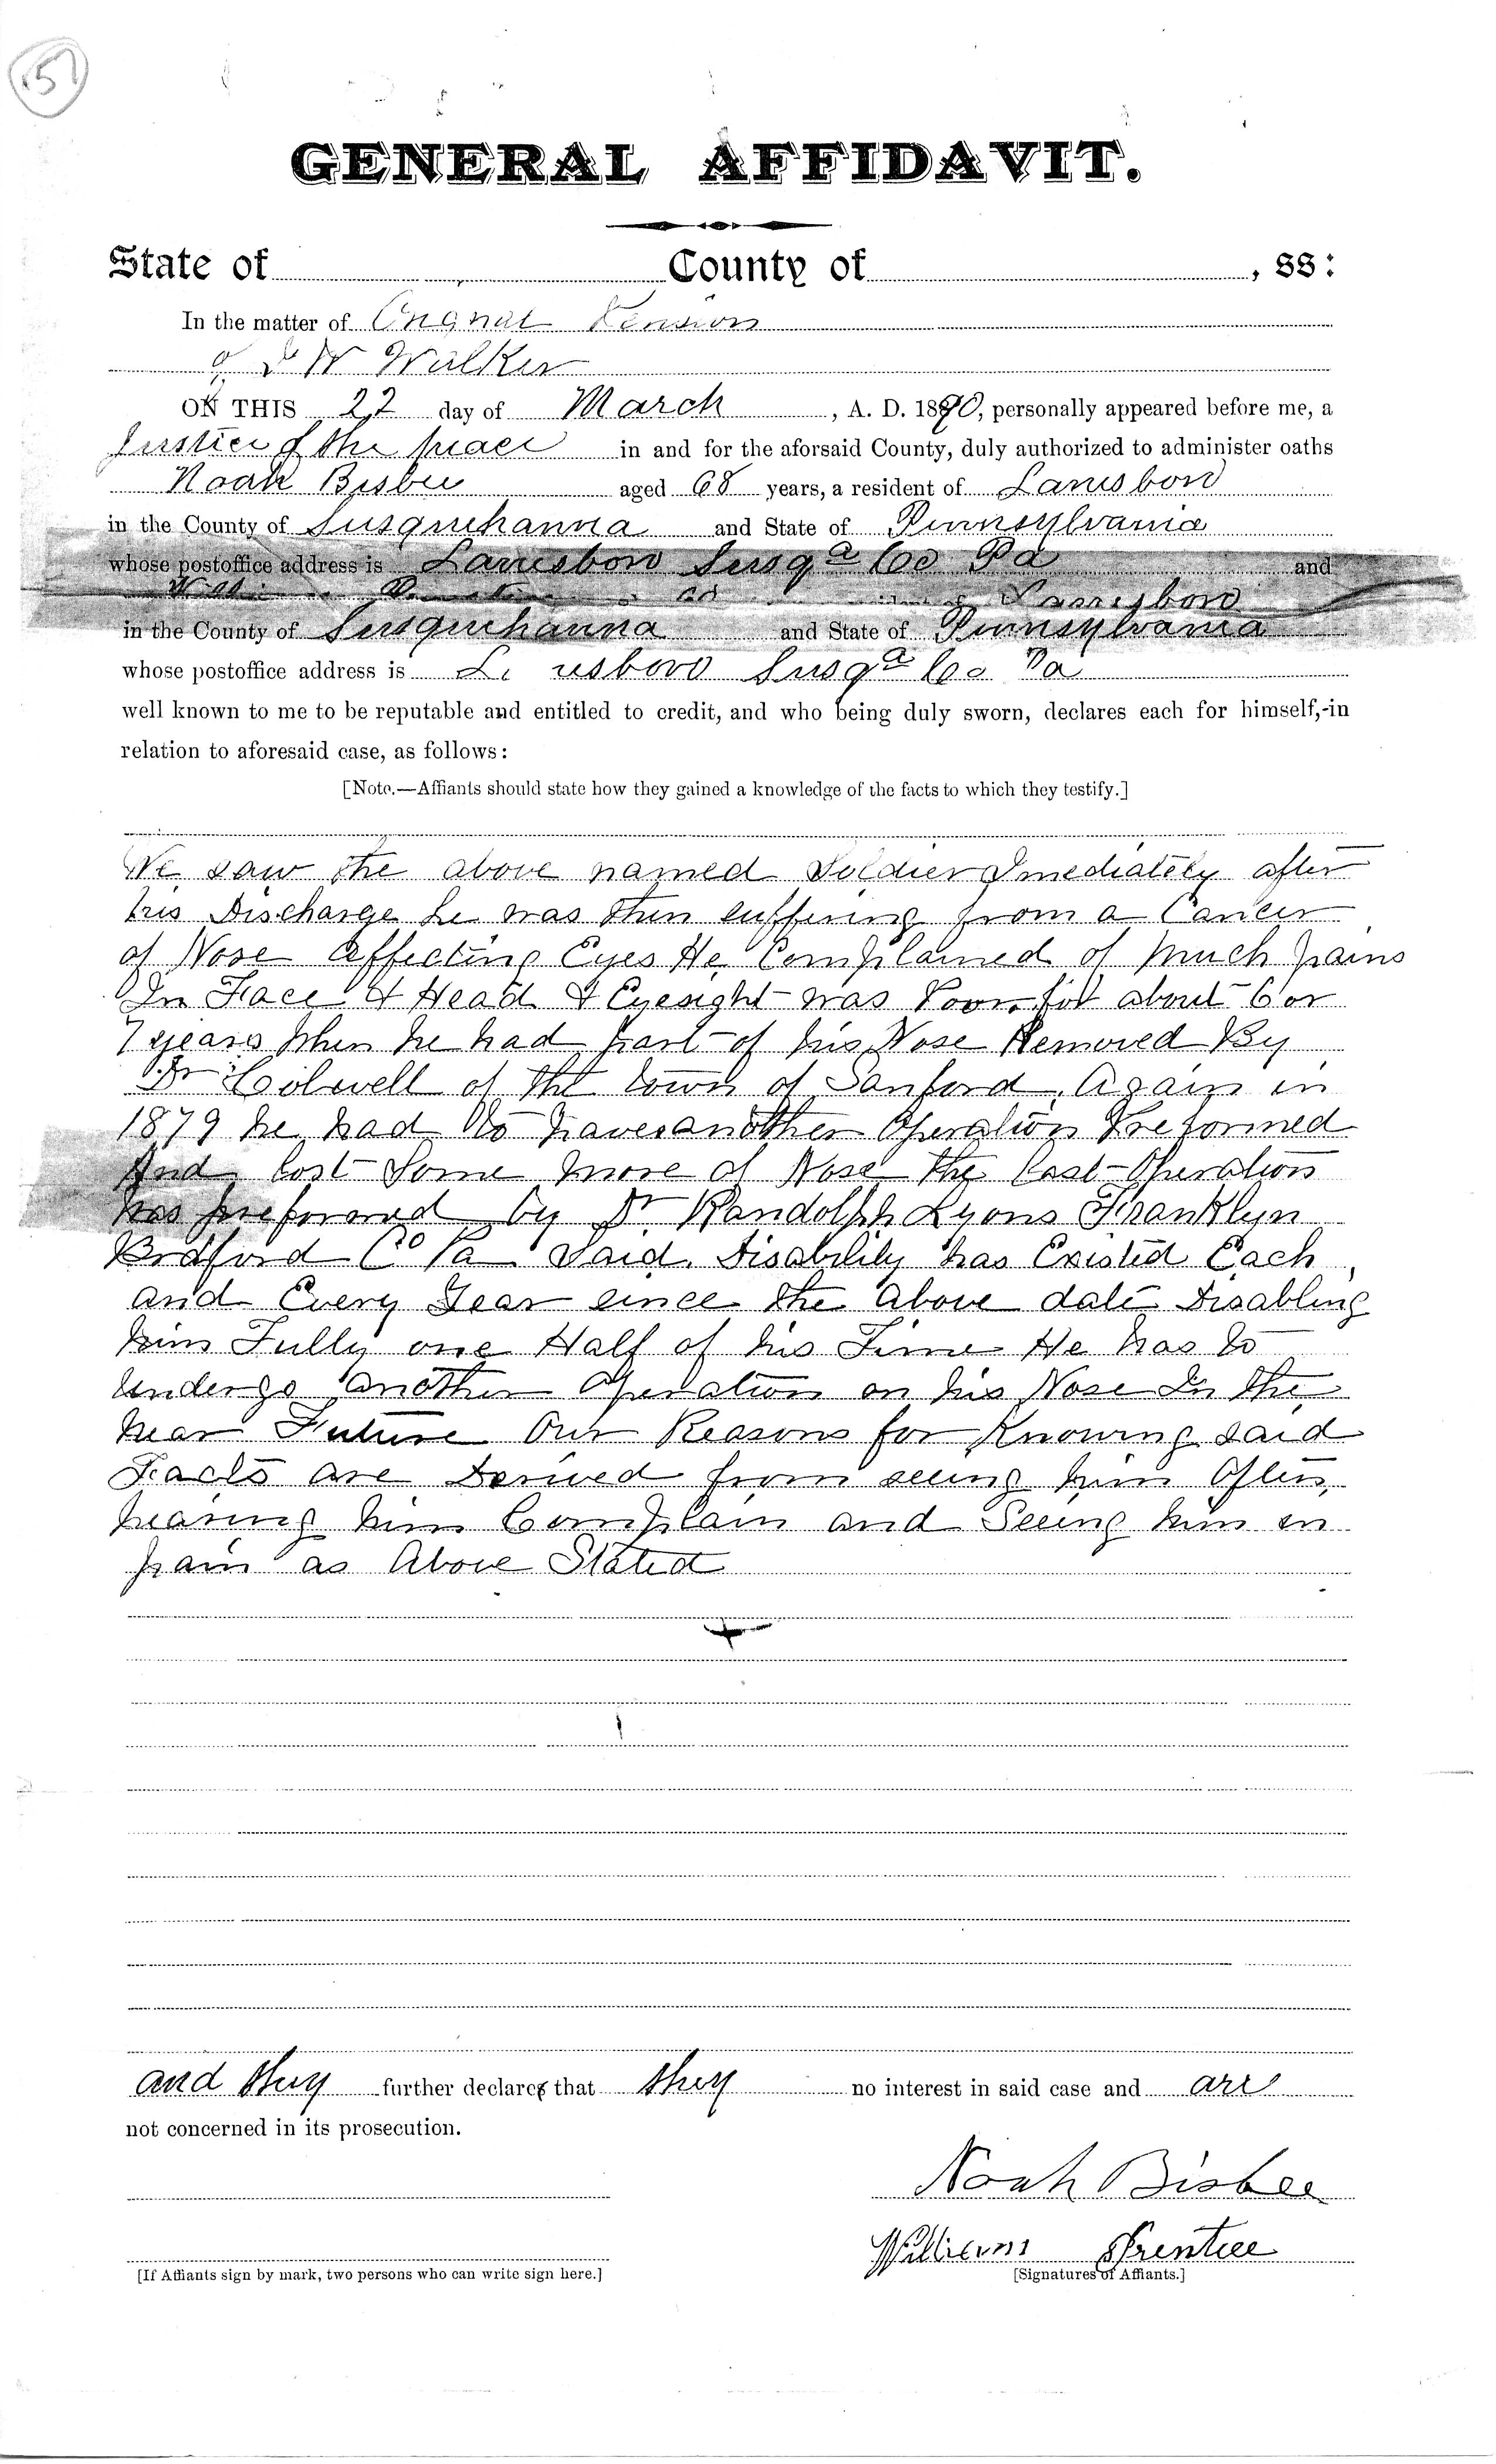 5
GENERAL AFFIDAVIT.
State of County of , SS:
In the matter of Orignal Pension
of D W Walker
ON THIS 22 day of March , A. D. 1890, personally appeared before me, a
Justice of the peace in and for the aforsaid County, duly authorized to administer oaths
Noah Bisbee aged 68 years, a resident of Lanesboro
in the County of Susquehanna and State of Pennsylvania
whose postoffice address is Lanesboro Susqa Co Pa and
Lanesboro
in the County of Susquehanna and State of Pennsylvania
whose postoffice address is Lanesboro Susqa Co Pa
well known to me to be reputable and entitled to credit, and who being duly sworn, declares each for himself,-in
relation to aforesaid case, as follows:
[Note.—Affiants should state how they gained a knowledge of the facts to which they testify.]
We saw the above named Soldier Imediately after
his Discharge he was then suffering from a Cancer
of Nose Affecting Eyes He Complained of Much pains
In Face & Head & Eyesight was Poor for about 6 or
7 years When he had part of his Nose Removed By
Dr Colwell of the town of Sanford. Again in
1879 he had to have another Operation Preformed
And lost Some more of Nose The last Operation
was preformed by Dr. Randolph Lyons Franklyn
Bradford Co Pa Said Disability has Existed Each
and Every Year since the Above date Disabling
him Fully one Half of his Time He has to
undergo another Operation on his Nose In the
near Future Our Reasons for Knowing said
Facts are Derived from seeing him Often,
hearing him Complain and Seeing him in
pain as Above Stated
and they further declares that they no interest in said case and are
not concerned in its prosecution.
Noah Bisbee
William Prentice
[If Affiants sign by mark, two persons who can write sign here.] [Signatures of Affiants.]